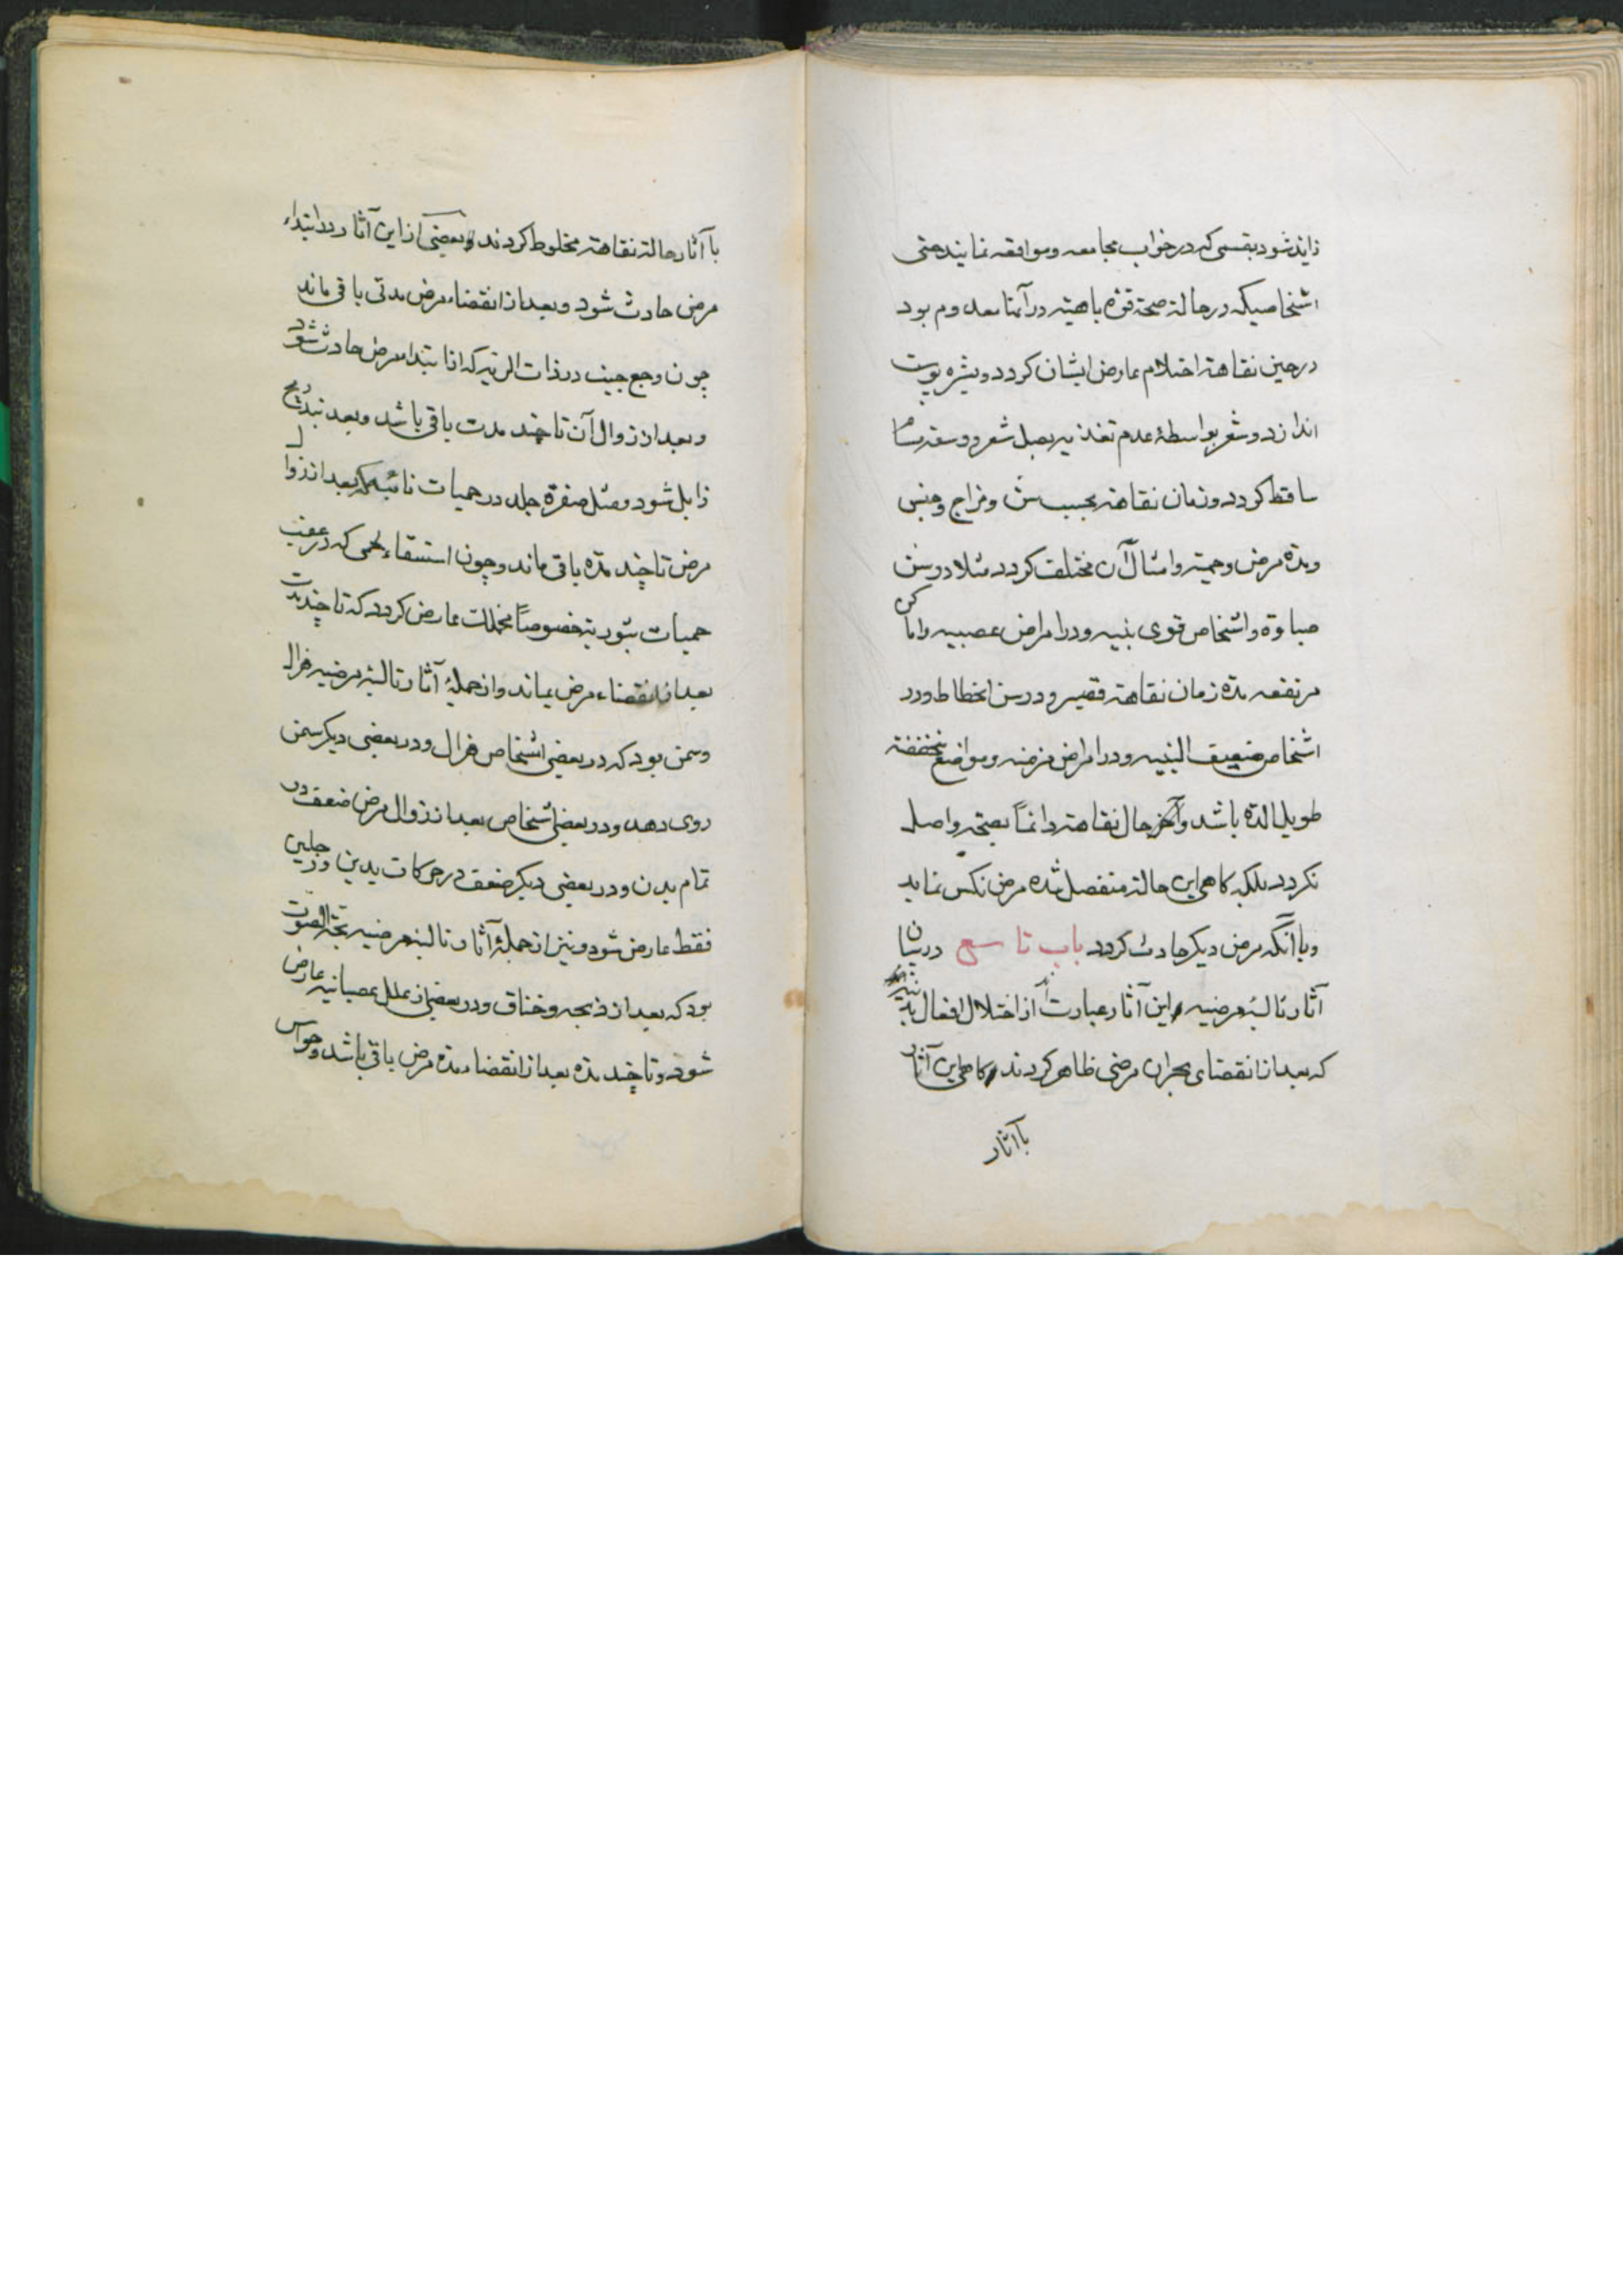 زاید شود بقسمی که در خواب مجامعه و مواقعه نمایند حتی
اشخاصیکه در حالة صحة قوّه باهیّه در آنها معدوم بود
در حین نقاهة احتلام عارض ایشان کردد و بشره پوست
اندازد و شعر بواسطهٔ عدم تغذیه بصل شعر و وسعة مسام
ساقط کردد و زمان نقاهة بحسب سنّ و مزاج و جنس
و مدّة مرض و حمیّة و امثال آن مختلف کردد مثلا در سنّ
صباوة و اشخاص قوی بنیه و در امراض عصبیه و اماکن
مرتفعه مدّة زمان نقاهة قصیر و در سن انحطاط و در
اشخاص ضعیف البنیه و در امراض مزمنه و مواضع منخفضة
طویل المدّة باشد و آخر حال نقاهة دائماً بصحّة واصل
نکردد بلکه کاهی این حالة منفصل شده مرض نکس نماید
و یا آنکه مرض دیکر حادث کردد باب تاسع در بیان
آثار تالیهٔ مرضیه و این آثار عبارت از اختلال افعال بدنیّه
که بعد از انقضای بحران مرضی ظاهر کردند و کاهی این آثار
با آثار
با آثار حالة نقاهة مخلوط کردند و بعضی از این آثار در ابتداء
مرض حادث شود و بعد از انقضاء مرض مدتی باقی ماند
چون وجع جنب در ذات الریه که از ابتداء مرض حادث شود
و بعد از زوال آن تا چند مدت باقی باشد و بعد بتدریج
زایل شود و مثل صفرة جلد در حمیات نائبه که بعد از زوال
مرض تا چند مدّة باقی ماند و چون استسقاء لحمی که در عقب
حمیات بثوریّه خصوصاً مخملک عارض کردد که تا چند مدت
بعد از انقضاء مرض بماند و از جملهٔ آثار تالیهٔ مرضیه هزال
و سمن بود که در بعضی اشخاص هزال و در بعضی دیکر سمن
روی دهد و در بعضی اشخاص بعد از زوال مرض ضعف در
تمام بدن و در بعضی دیکر ضعف در حرکات یدین و رجلین
فقط عارض شود و نیز از جملهٔ آثار تالیهٔ مرضیه بحّة الصّوت
بود که بعد از ذبحه و خناق و در بعضی از علل عصبانیه عارض
شود و تا چند مدّة بعد از انقضاء مدّة مرض باقی باشد و حواس